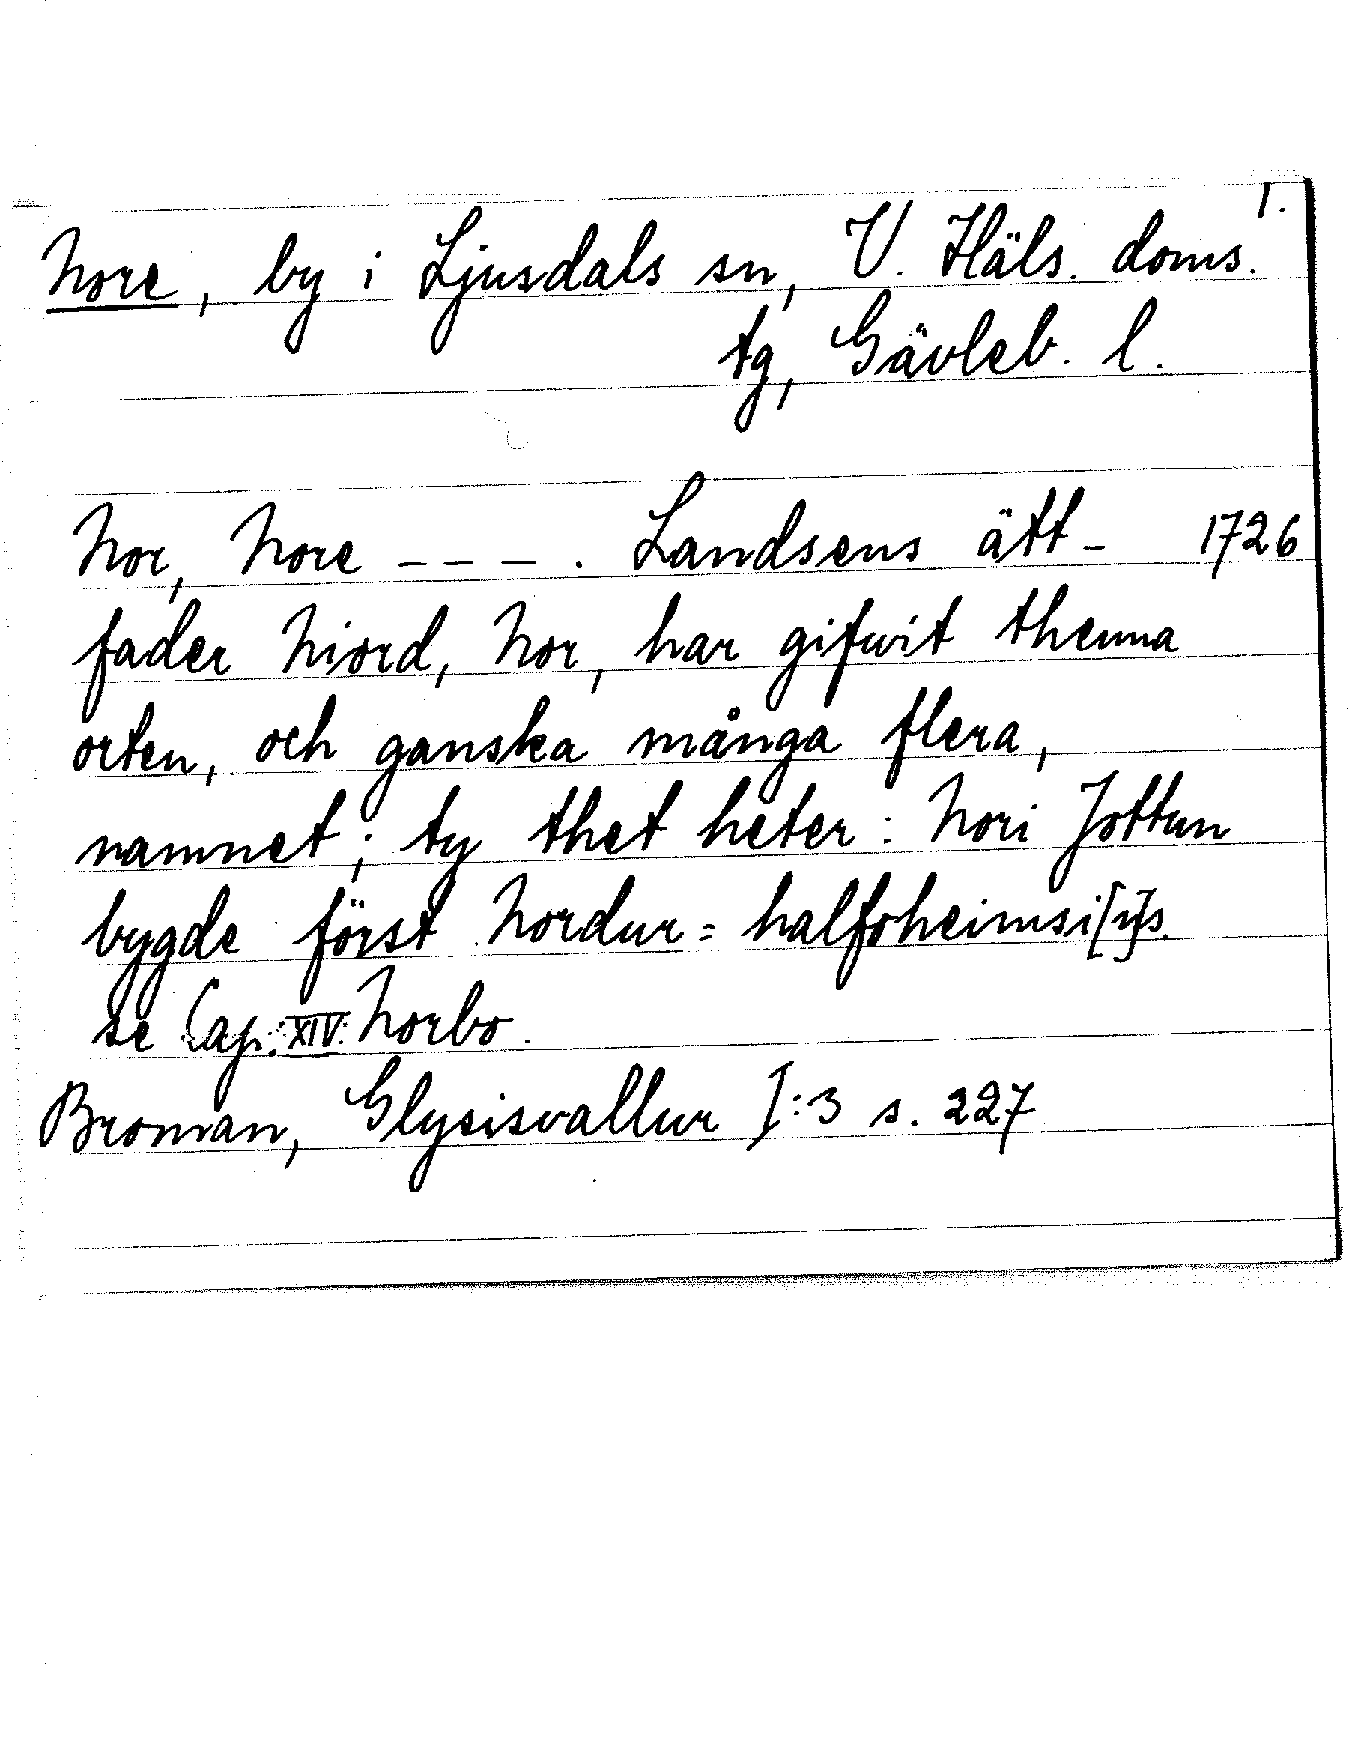 1.
Nore, by i Ljusdals sn, V. Häls. doms.
tg, Gävleb. l.
Nor, Nore - - - . Landsens ätt- 1726
fader Niord, Nor, har gifwit thenna
orten, och ganska många flera,
namnet; ty thet heter: Nori Jottun
bygde först Nordur= halfoheimsi[n]s.
se Cap. XIV. Norbo.
Broman, Glysisvallur I:3 s. 227